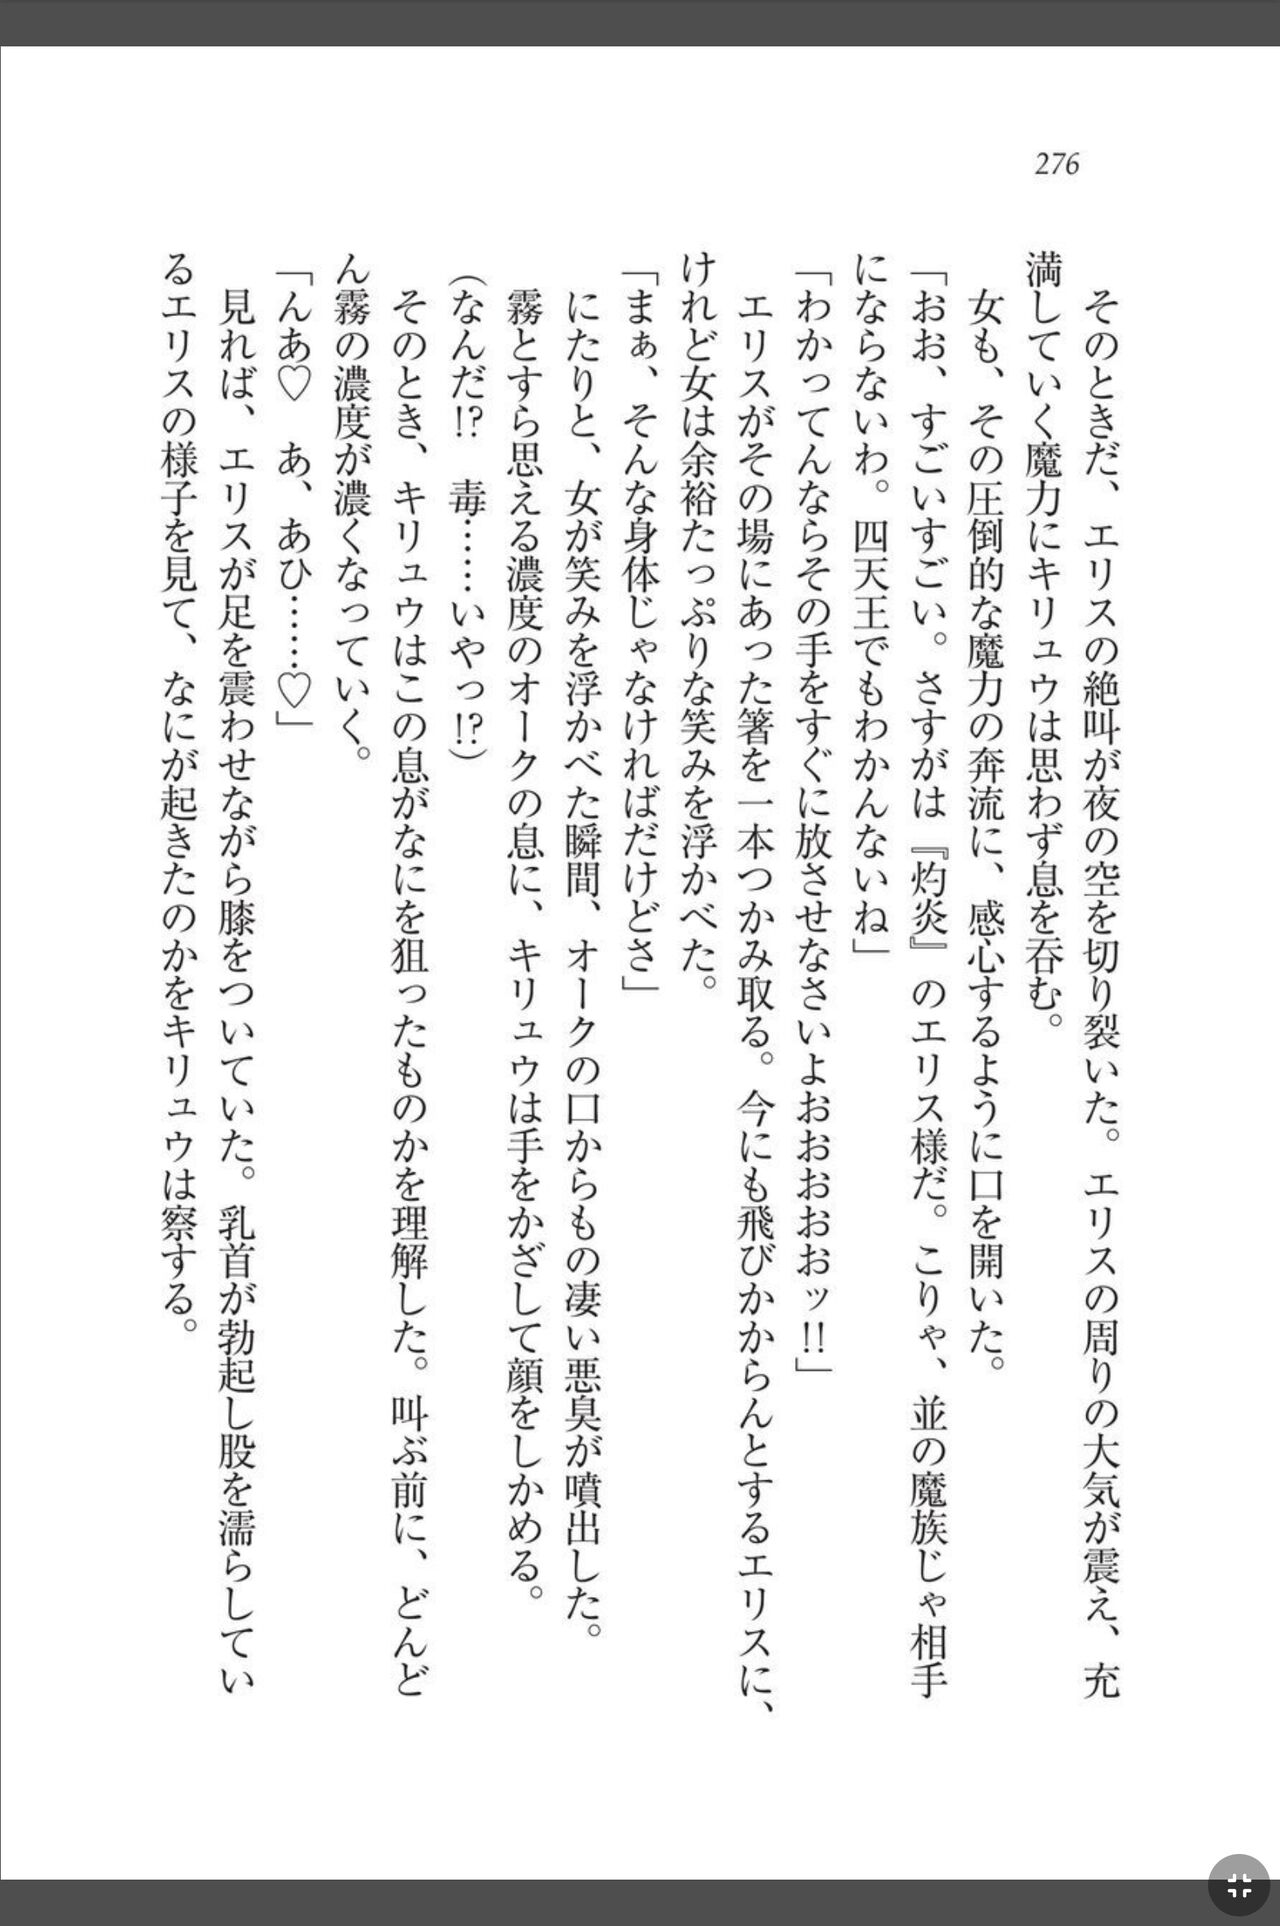 276
そのときだ、エリスの絶叫が夜の空を切り裂いた。エリスの周りの大気が震え、充
満していく魔力にキリュウは思わず息を呑む。
女も、その圧倒的な魔力の奔流に、感心するように口を開いた。
「おお、すごいすごい。さすがは『灼炎』のエリス様だ。こりゃ、並の魔族じゃ相手
にならないわ。四天王でもわかんないね」
「わかってんならその手をすぐに放させなさいよおおおおおッ!!」
エリスがその場にあった箸を一本つかみ取る。今にも飛びかからんとするエリスに、
けれど女は余裕たっぷりな笑みを浮かべた。
「まぁ、そんな身体じゃなければだけどさ」
にたりと、女が笑みを浮かべた瞬間、オークの口からもの凄い悪臭が噴出した。
霧とすら思える濃度のオークの息に、キリュウは手をかざして顔をしかめる。
(なんだ!?　毒……いやっ!?)
そのとき、キリュウはこの息がなにを狙ったものかを理解した。叫ぶ前に、どんど
ん霧の濃度が濃くなっていく。
「んあ♡　あ、あひ……♡」
見れば、エリスが足を震わせながら膝をついていた。乳首が勃起し股を濡らしてい
るエリスの様子を見て、なにが起きたのかをキリュウは察する。